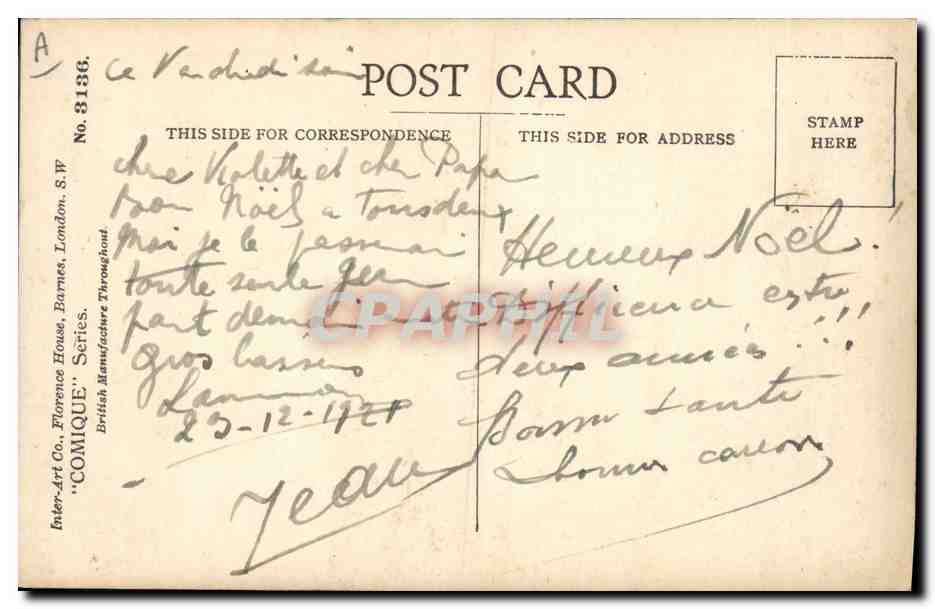 A
ce Vendredi soir
POST CARD
THIS SIDE FOR CORRESPONDENCE
THIS SIDE FOR ADDRESS
STAMP
HERE
chere Violette et cher Papa
bon Noël a Tous deux
Moi je le passerai
toute seule Jean
part demain
gros baisers
23-12-1921
Jean
Heureux Noël!
entre
deux années !!!
Bonne santé
Inter-Art Co., Florence House, Barnes, London. S.W
"COMIQUE" Series.
British Manufacture Throughout
No. 3136.
CPAPHIL